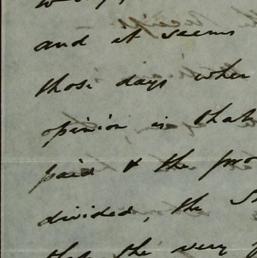 and it seems
those days when
opinion is that
paid & the pro
divided, the S
that the very